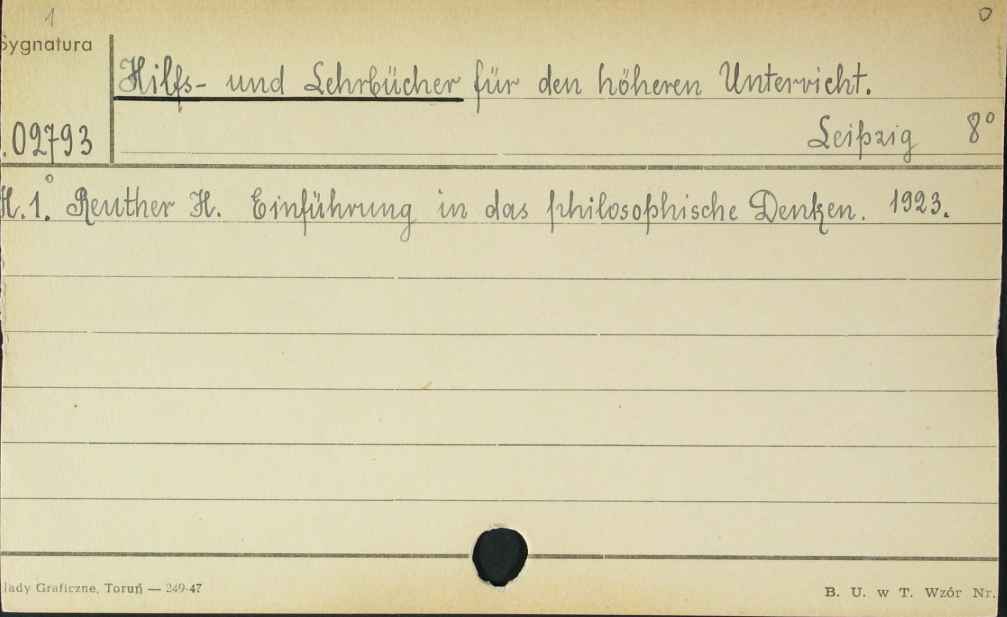 1 0
Sygnatura
Hilfs- und Lehrbücher für den höheren Unterricht.
.02793 Leipzig 8°
H. 1.° Reuther H. Einführung in das philosophische Denken. 1923.
łady Graficzne, Toruń — 249-47 B. U. w T. Wzór Nr.